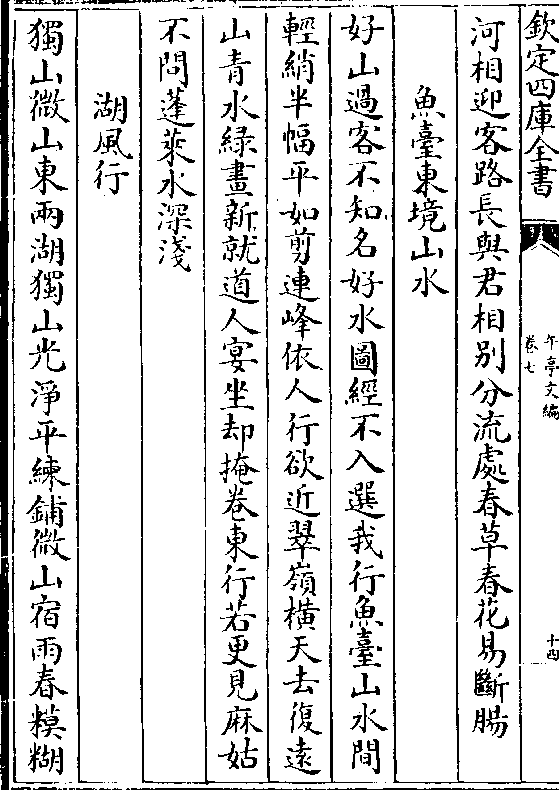 欽定四庫全書
午亭文編
卷七
十四
河相迎客路長與君相別分流處春草春花易斷腸
魚臺東境山水
好山過客不知名好水圖經不入選我行魚臺山水間
輕綃半幅平如剪連峰依人行欲近翠嶺橫天去復遠
山青水緑畫新就道人宴坐却掩卷東行若更見麻姑
不問蓬萊水深淺
湖風行
獨山微山東兩湖獨山光淨平練鋪微山宿雨春糢糊